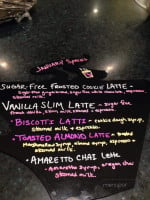 January Specials
Sugar-Free Frosted Cookie Latte -
Sugar free gingerbread, sugar free white chocolate, espresso,
steamed milk.
Vanilla Slim Latte - Sugar free
french vanilla, skim milk, steamed + espresso.
- Biscotti Latte - cookie dough syrup,
steamed milk + espresso.
- Toasted Almond Latte - toasted
Marshmallow syrup, almond syrup, espresso,
steamed milk.
- Amaretto Chai Latte
- Amaretto syrup, oregon chai
steamed milk.